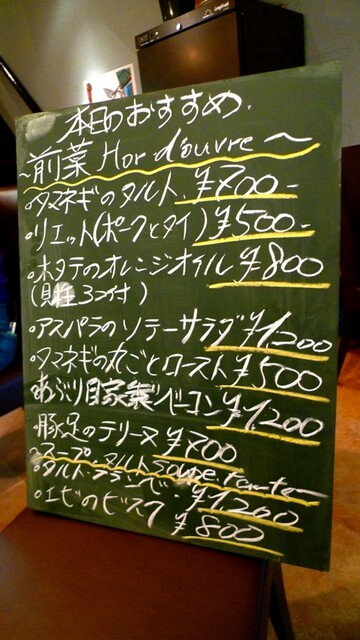 本日のおすすめ.
~前菜 Hor d'ouvre~
・タマネギのタルト. ¥700-
・リエット(ポークとタイ) ¥500-
・ホタテのオレンジオイル ¥800
(貝柱3コ付)
・アスパラのソテーサラダ ¥1200
・タマネギの丸ごとロースト ¥500
・あぶり自家製ベーコン ¥1,200
豚足のテリーヌ ¥700
・スープ・タルト Soupe.
・タルト・フランベ・¥1200
・エビのビスク ¥800